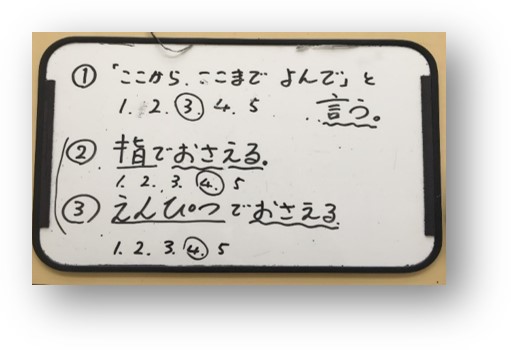 ① 「ここから、ここまで よんで」と
1. 2. ③. 4. 5 言う。
② 指でおさえる。
1. 2. 3. ④. 5
③ えんぴつでおさえる
1. 2. 3. ④. 5